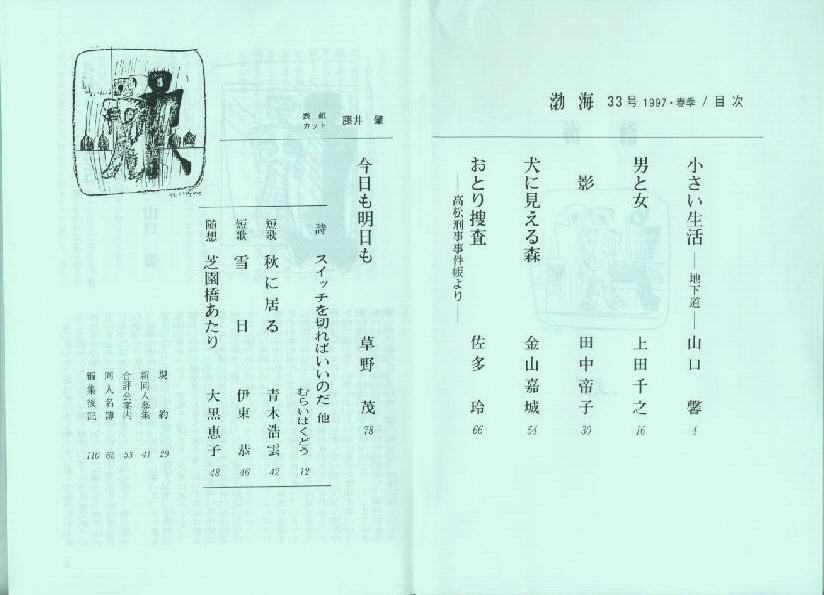 渤海 33号 1997・春季 / 目次
小さい生活 ―地下道― 山口 馨 4
男と女 上田千之 16
影 田中帝子 30
犬に見える森 金山嘉城 54
おとり捜査 ―高松刑事事件帳より― 佐多 玲 66
表紙 カット 藤井 肇
今日も明日も 草野 茂 78
詩 スイッチを切ればいいのだ 他 むらいはくどう 12
短歌 秋に居る 青木浩雲 42
短歌 雪日 伊東 恭 46
随想 芝園橋あたり 大黒恵子 48
規約 29
新同人募集 41
合評会案内 53
同人名簿 65
編集後記 110